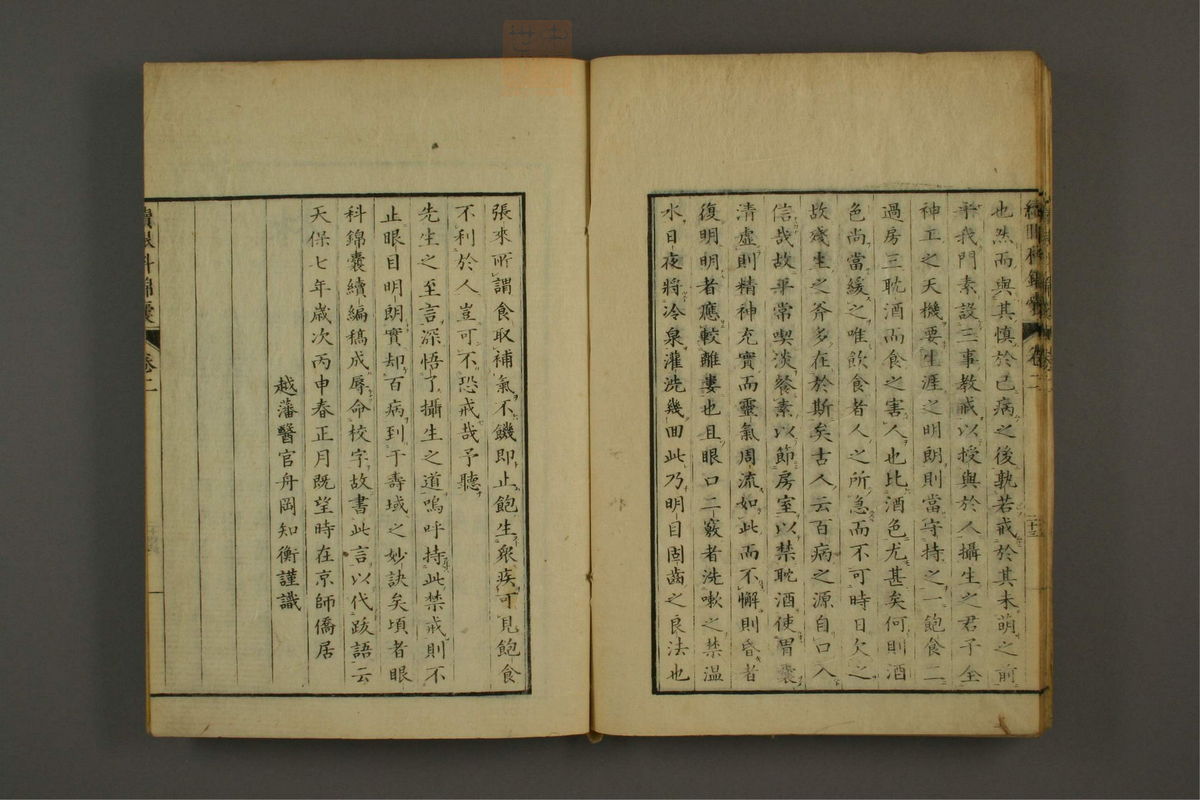 也然而與其慎於已病之後孰若戒於其未萌之前
乎我門素設三事教戒以授與於人攝生之君子全
神工之天機要生涯之明朗則當守持之一飽食二
過房三耽酒而食之害人也比酒色尤甚矣何則酒
色尚當緩之唯飲食者人之所急而不可時日欠之
故殘生之斧多在於斯矣古人云百病之源自口入
信哉故平常喫淡餐素以節房室以禁耽酒使胃囊
清虛則精神充實而靈氣周流如此而不懈則昏者
復明明者應較離婁也且眼口二竅者洗嗽之禁温
水日夜將冷泉灌洗幾回此乃明目固齒之良法也
二十三
張來所謂食取補氣不饑即止飽生衆疾可見飽食
不利於人豈可不恐戒哉予聽
先生之至言深悟了攝生之道嗚呼持此禁戒則不
止眼目明朗實却百病到于壽域之妙訣矣頃者眼
科錦囊續編稿成辱命校字故書此言以代跋語云
天保七年歲次丙申春正月既望時在京師僑居
越藩醫官舟岡知衡謹識
續眼科錦囊 卷二